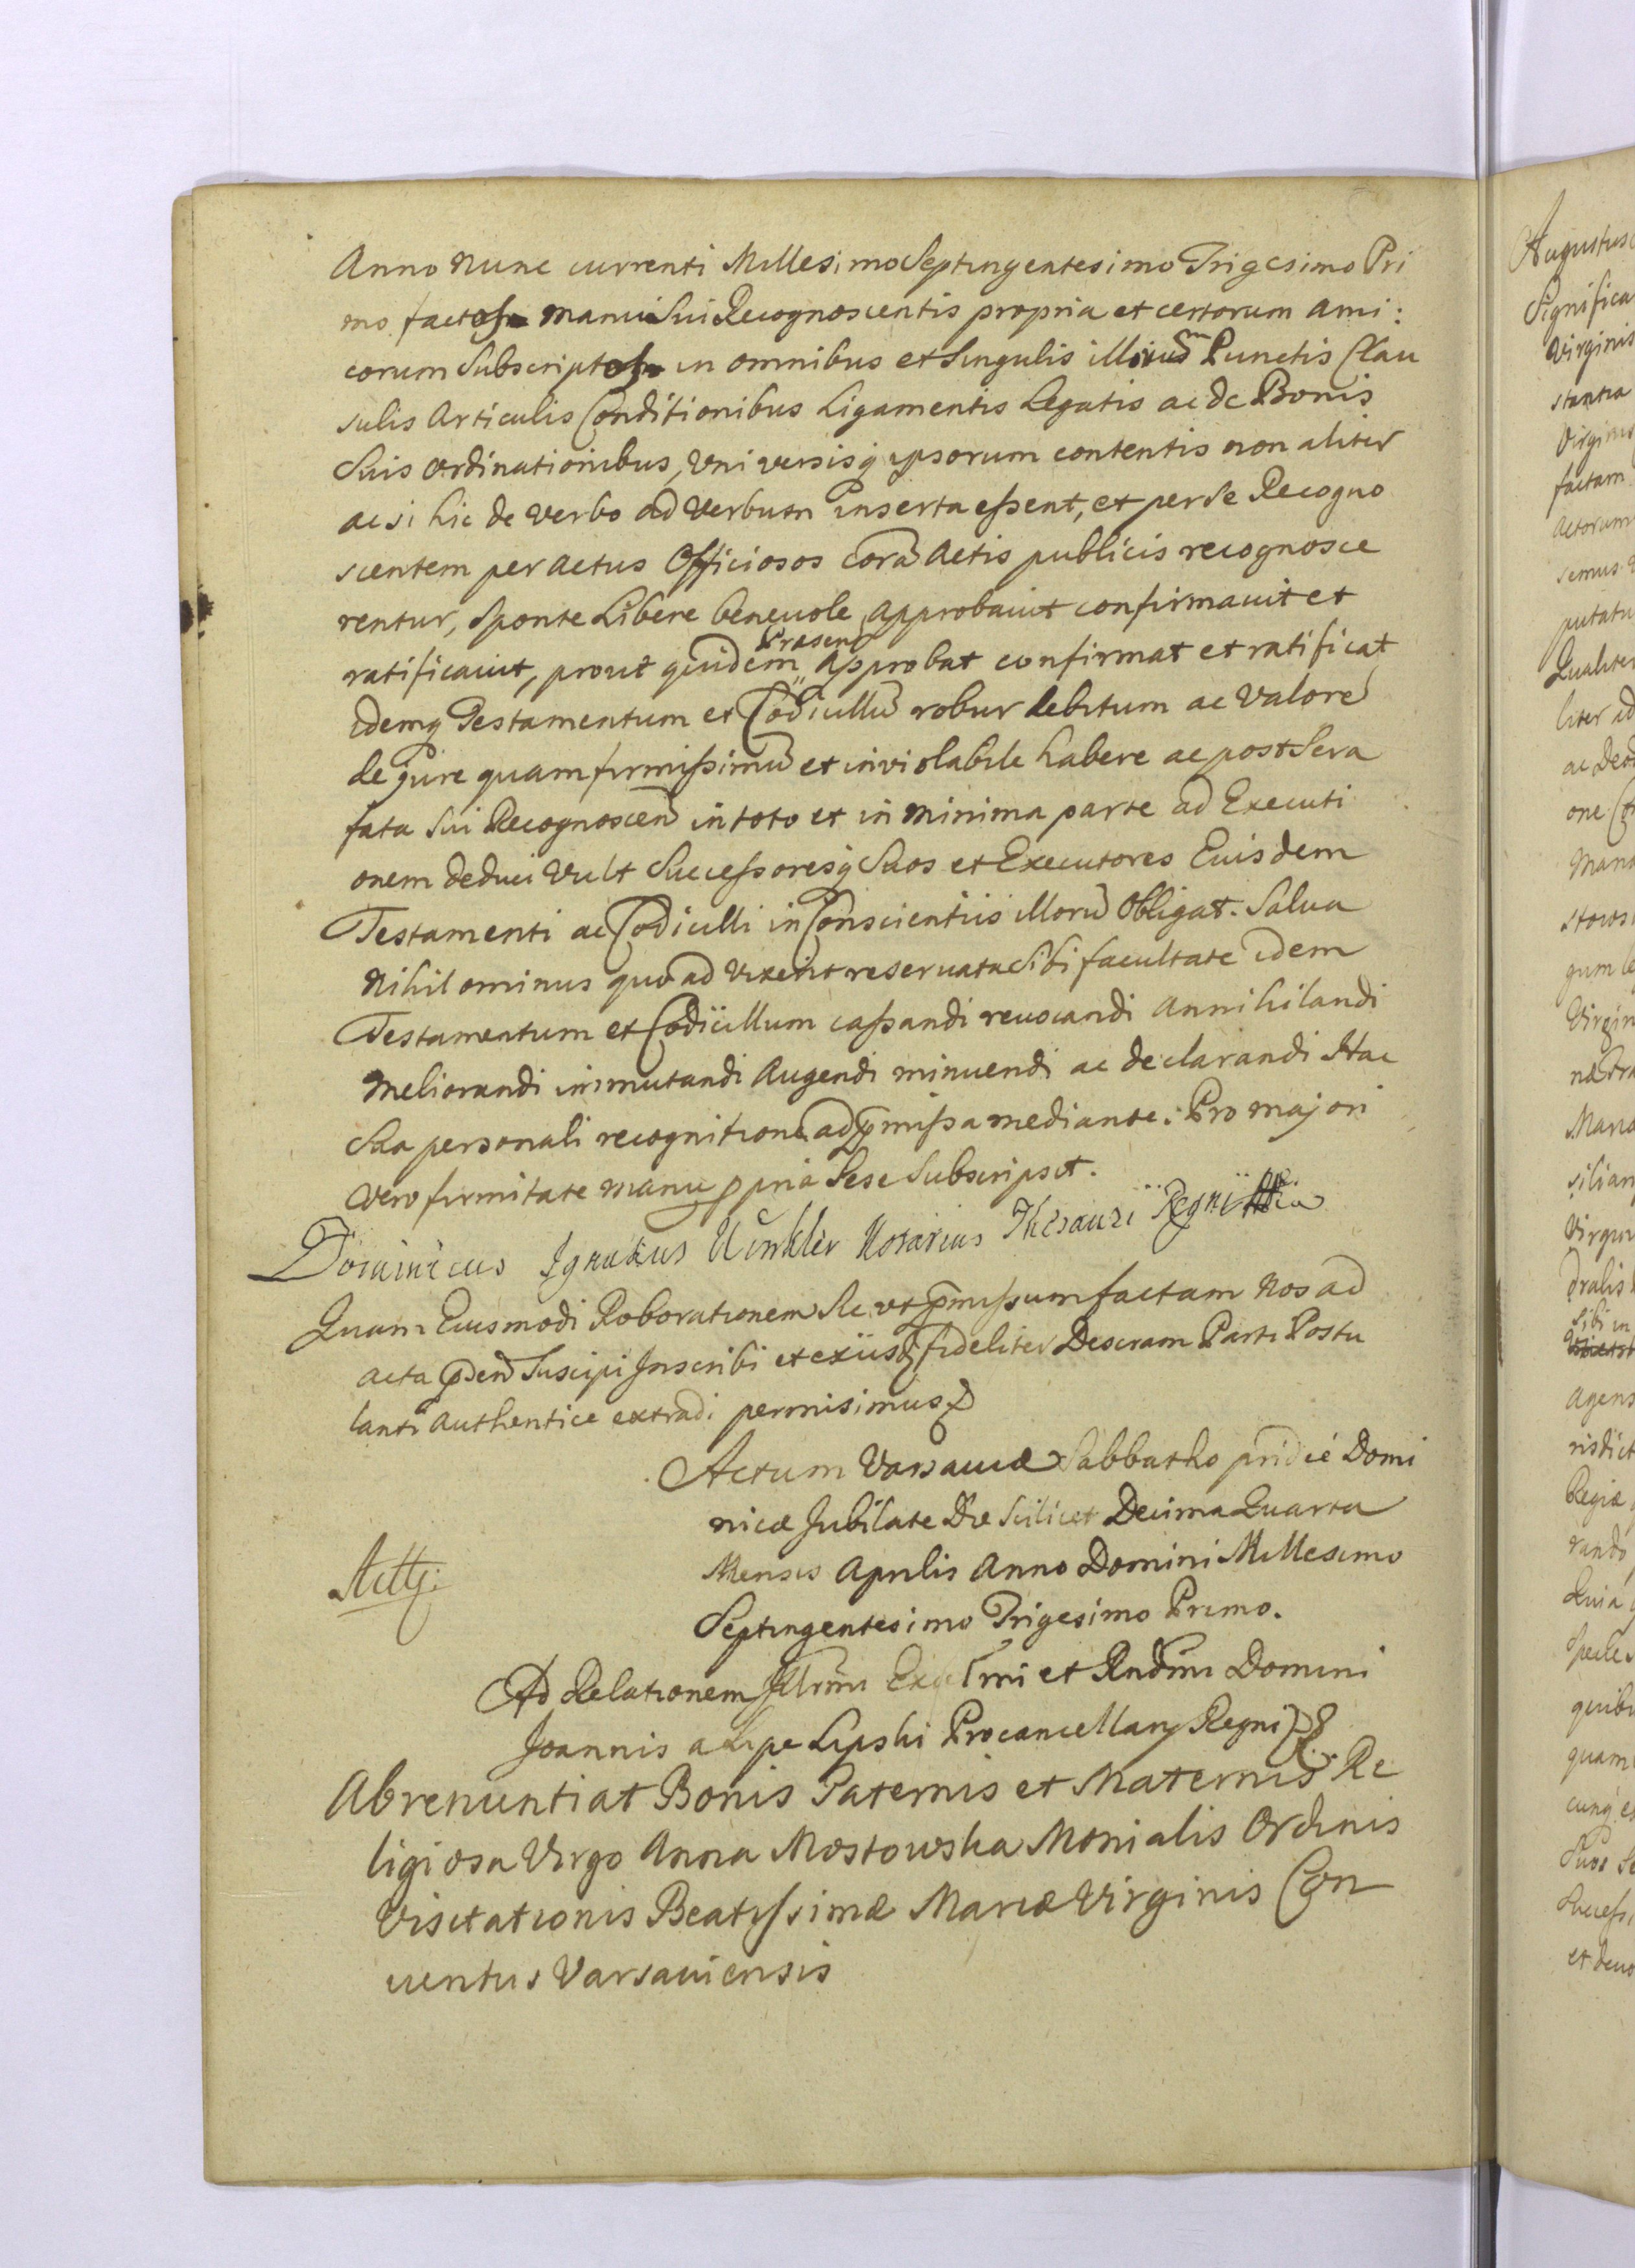 Anno Nunc currenti Millesimo Septingentesimo Trigesimo Pri
mo factos manu Sui Recognoscentis propria et certorum ami:
corum Subscriptos in omnibus et Singulis illorum Punctis Clau
sulis Articulis Conditionibus Ligamentis Legatis ac de Bonis
Suis Ordinationibus, Universisq ipsorum contentis non aliter
acsi hic de Verbo ad Verbum inserta essent, et per se Recogno
scentem per actus Officiosos corã Actis publicis recognosce
rentur, sponte Libere beneuole approbauit confirmauit et
Præsenõ
ratificauit, prout quidem approbat confirmat et ratificat
Idemq Testamentum et Codicillũ robur debitum ac Valorẽ
de jure quam firmissimũ et inviolabile habere ac post Sera
fata Sui Recognoscen in toto et in minima parte ad Executi
onem deduci Vult Successoresq Suos et Executores Eiusdem
Testamenti ac Codicilli in Conscientiis illorũ Obligat. Salua
Nihilominus quoad vixerit reseruata Sibi facultate idem
Testamentum et Codicillum cassandi reuocandi Annihilandi
Meliorandi immutandi Augendi minuendi ac declarandi Hac
Sua personali recognitione ad pmissa mediante. Pro majori
vero firmitate manu ppria Sese Subscripsit.
Dominicus Ignatius Winkler Notarius Thesauri Regni
Quam Eiusmodi Roborationem Sic ut pmissum factam Nos ad
acta pden Suscipi Inscribi et exiisd fideliter Descram Parti Postu
lanti authentice extradi permisimus
Actum Varsauiæ Sabbatho pridie Domi
nicæ Jubilate Die Scilicet Decima Quarta
Mensis Aprilis Anno Domini Millesimo
Septingentesimo Trigesimo Primo.
Ad Relationem Illmi Excellmi et Rndmi Domini
Joannis a Lipe Lipski Procancellarij Regni
Abrenuntiat Bonis Paternis et Maternis Re
ligiosa Virgo Anna Mostowska Monialis Ordinis
Visitationis Beatissimæ Mariæ Virginis Con
uentus Varsauiensis
Augustus
Significa
Virginis
stantia
Virginis
factam
Actorum
semus
putatu
Qualiter
liter id
ac Deo
one
Mana
stows
gum le
Virgin
Maria
silian
Virgin
dralis
Sibi in
agens
risdict
Regiæ
rando
Quia
Specle
quibu
quam
cunq et
Suos Se
Success
et deuo